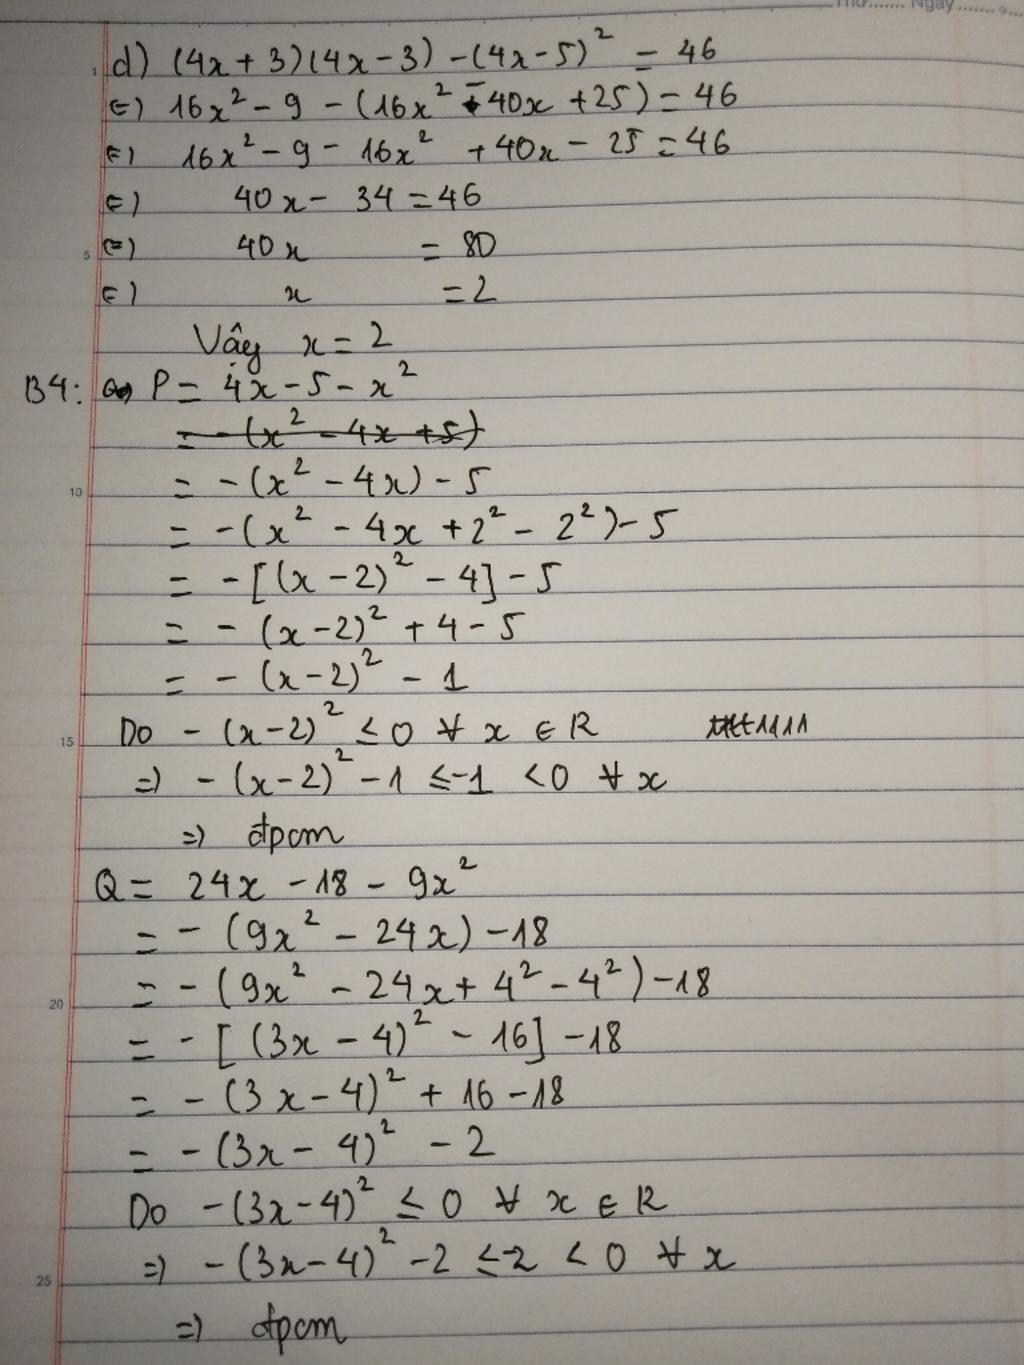 Thứ....... Ngày.......
d) (4x + 3)(4x - 3) - (4x - 5)² = 46
⇔ 16x² - 9 - (16x² - 40x + 25) = 46
⇔ 16x² - 9 - 16x² + 40x - 25 = 46
⇔ 40x - 34 = 46
5 ⇔ 40x = 80
⇔ x = 2
Vậy x = 2
B4: P = 4x - 5 - x²
= -(x² - 4x + 5)
10 = -(x² - 4x) - 5
= -(x² - 4x + 2² - 2²) - 5
= -[(x - 2)² - 4] - 5
= - (x - 2)² + 4 - 5
= - (x - 2)² - 1
15 Do - (x - 2)² ≤ 0 ∀ x ∈ R
=> - (x - 2)² - 1 ≤ -1 < 0 ∀ x
=> đpcm
Q = 24x - 18 - 9x²
= - (9x² - 24x) - 18
20 = - (9x² - 24x + 4² - 4²) - 18
= - [(3x - 4)² - 16] - 18
= - (3x - 4)² + 16 - 18
= - (3x - 4)² - 2
Do - (3x - 4)² ≤ 0 ∀ x ∈ R
25 => - (3x - 4)² - 2 ≤ -2 < 0 ∀ x
=> đpcm